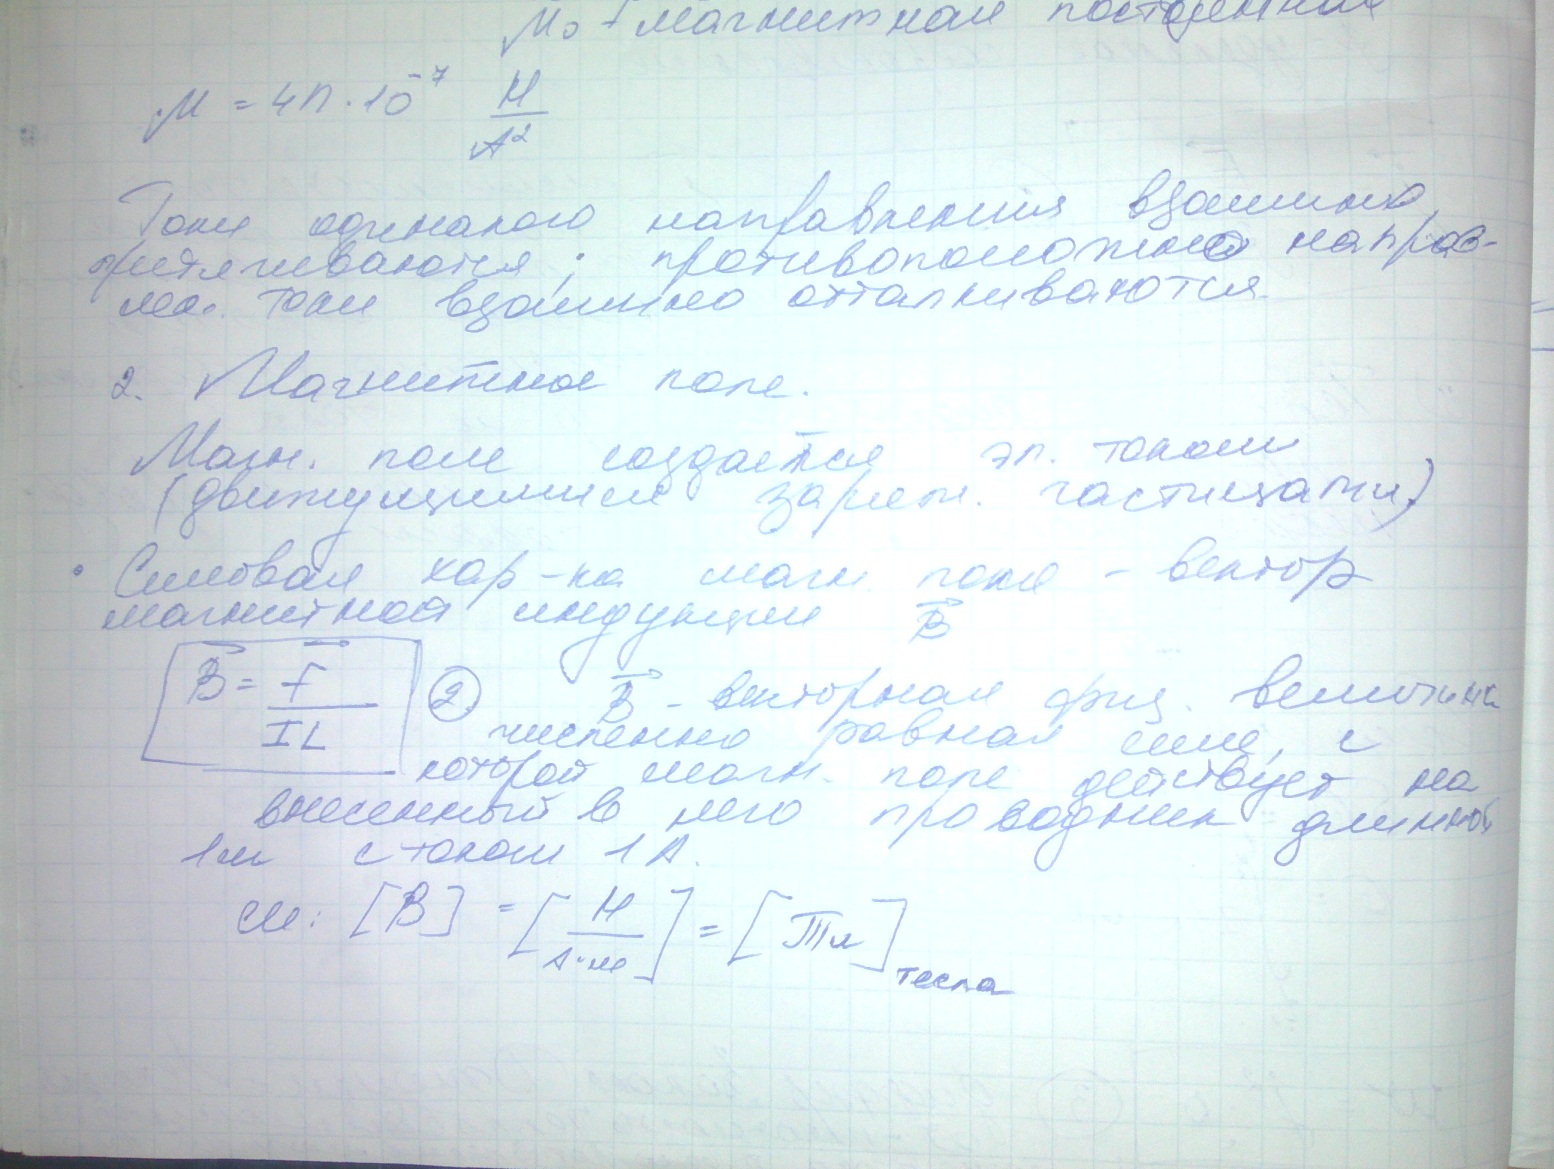 M₀ - магнитная постоянная
M = 4π · 10⁻⁷ Н/А²
Токи одинакого направления взаимно
притягиваются; противоположно направ-
ла. токи взаимно отталкиваются.
2. Магнитное поле.
Магн. поле создаётся эл. током
(движущимися заряж. частицами)
• Силовая хар-ка магн. поля - вектор
магнитной индукции B⃗
B⃗ = F⃗ / IL (2) B⃗ - векторная физ. величина
численно равная силе, с
которой магн. поле действует на
внесенный в него проводник длинной
1м с током 1А.
си: [B] = [Н / А·м] = [Тл] тесла